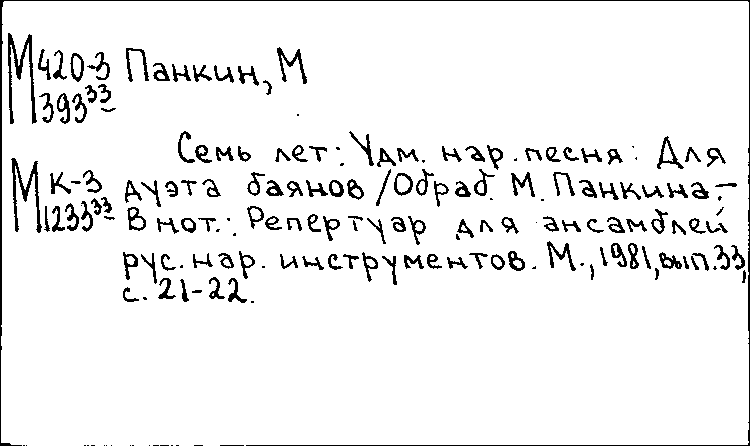 М 420-3 Панкин, М
393 33
Семь лет: Удм. нар. песня: Для
М К-3 дуэта баянов /Обраб. М. Панкина.-
1233 33 В нот.: Репертуар для ансамблей
рус. нар. инструментов. М., 1981, вып.33,
с. 21-22.